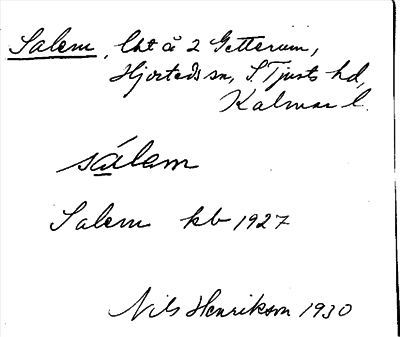 Salem, lht å 2 Getterum,
Hjorteds sn, S Tjusts hd,
Kalmar l.
sálem
Salem kb 1927
Nils Henrikson 1930